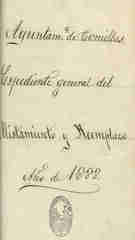 Ayuntam.º de Comillas
Expediente general del
Alistamiento y Reemplazo
Año de 1892